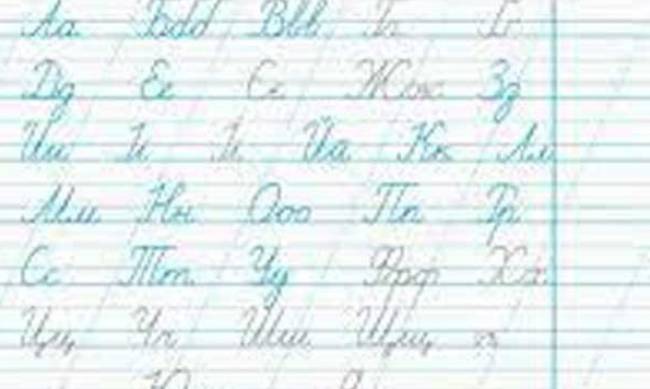 Аа Ббб Ввв Гг Ґґ
Дд Ее Єє Жж Зз
Ии Іі Її Йй Кк Лл
Мм Нн Ооо Пп Рр
Сс Тт Уу Фф Хх
Цц Чч Шш Щщ ь